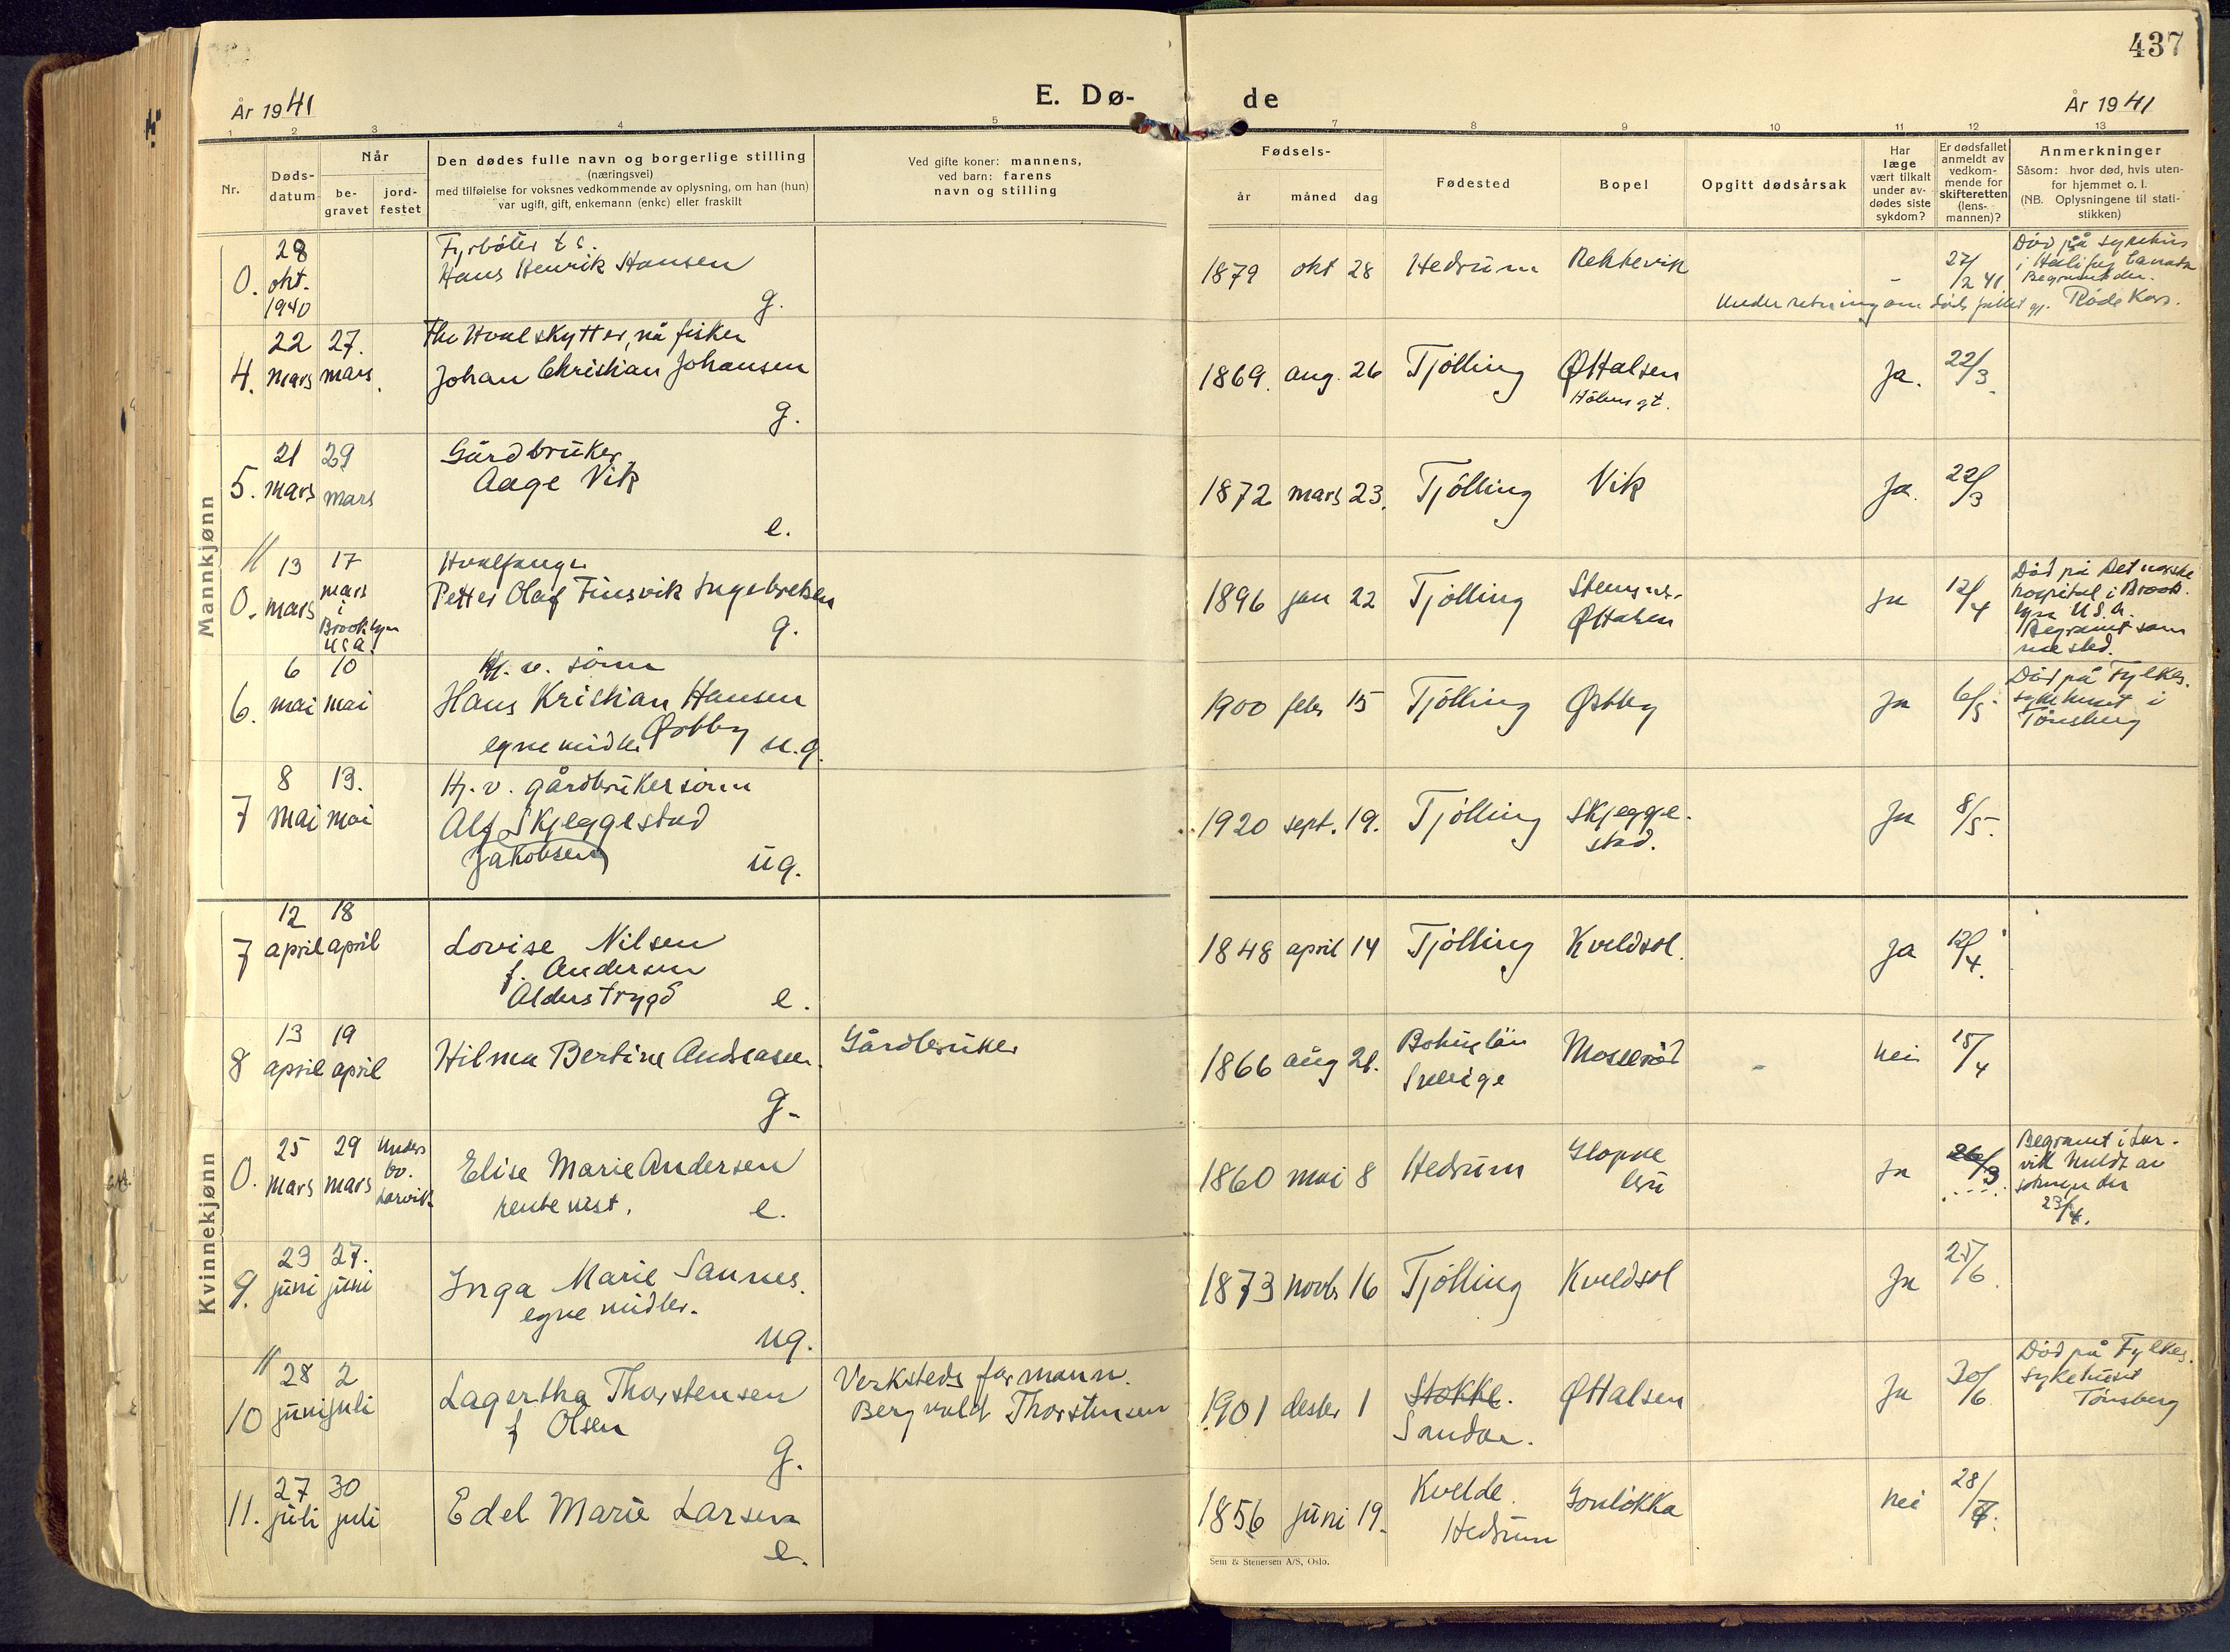 437
År 1941
E. Dø-
de
År 1941
1 2 3 4 5 7 8 9 10 11 12 13
Nr.
Døds-
datum
Når
be-
gravet
jord-
festet
Den dødes fulle navn og borgerlige stilling
(næringsvei)
med tilføielse for voksnes vedkommende av oplysning, om han (hun)
var ugift, gift, enkemann (enke) eller fraskilt
Ved gifte koner: mannens,
ved barn: farens
navn og stilling
Fødsels-
år måned dag
Fødested
Bopel
Opgitt dødsårsak
Har
læge
vært tilkalt
under av-
dødes siste
sykdom?
Er dødsfallet
anmeldt av
vedkom-
mende for
skifteretten
(lens-
mannen)?
Anmerkninger
Såsom: hvor død, hvis uten-
for hjemmet o. l.
(NB. Oplysningene til stati-
stikken)
Mannkjønn
0.
28
okt.
1940
Fyrbøter
Hans Henrik Hansen
g.
1879 okt 28 Hedrum Rekkevik
-
27/2 41
Død på sykehus
i Halifax Canada
Begravet der.
Underretning om dødsfallet gj. Røde Kors.
4.
22
mars
27.
mars
Hvalskytter, nå fisker
Johan Christian Johansen
g.
1869. aug. 26 Tjølling Østtalsen
Ja. 22/3
5.
21
mars
29
mars
Gårdbruker
Aage Vik
e.
1872 mars 23. Tjølling Vik Ja. 22/3
0.
13
mars
17
mars
i
Brooklyn
USA.
Hvalfanger
Petter Olaf Tinsvik Ingebretsen
g.
1896 jan 22 Tjølling
Ja 12/4
Død på Det norske
hospital i Brook-
lyn U.S.A.
Begravet samme
sted.
6.
6
mai
10
mai
sønn
Hans Kristian Hansen
Østby
egne midler
u.g.
1900 febr 15 Tjølling Østby Ja 6/5
Død på Fylkes.
sykehuset i
Tønsberg
7
8
mai
13.
mai
Hj. v. gårdbrukersønn
Alf Skjeggestad
Jakobsen
ug.
1920 sept. 19. Tjølling Skjegge-
stad.
Ja 8/5.
Kvinnekjønn
7
12
april
18
april
Lovise Nilsen
f. Andersen
Alderstrygd
e.
1848 april 14 Tjølling Kveldsol. Ja 12/4.
8
13
april
19
april
Hilma Bertine Andreasen.
g.
Gårdbruker
1866 aug 21. Bohuslän
Sverige
Moserød
-
Nei 15/4
0.
25
mars
29
mars
Unders
bo.
Larvik
Elise Marie Andersen
e.
1860 mai 8 Hedrum Gloppe
bru
Ja 26/3
Begravet i Lar-
vik Meldt av
23/4.
9.
23
juni
27.
juni
Inga Marie Sannes.
egne midler.
ug.
1873 novb 16 Tjølling Kveldsol Ja 25/6.
10
28
juni
2
juli
Lagertha Thorstensen
f Olsen
g.
Verksteds formann.
Bergvald Thorstensen
1901 desbr 1 Stokke.
Sandar.
Østtalsen
Ja 30/6
Død på Fylkes.
sykehuset
Tønsberg
11.
27
juli
30
juli
Edel Marie Larsen
e.
1856 juni 19. Kvelde.
Hedrum
Gonløkka
Nei 28/7.
Sem & Stenersen A/S, Oslo.